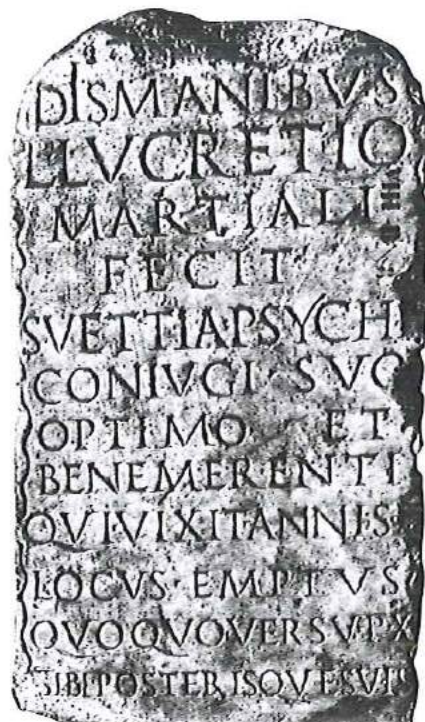 DIS MANIBVS
L LVCRETIO
MARTIALI
FECIT
SVETTIA·PSYCH
CONIVGI· SVO
OPTIMO ET
BENEMERENTI
QVI VIXIT ANNIS
LOCVS EMPTVS
QVOQVO VERSV·P·X
SIBI POSTERISQVE SVIS